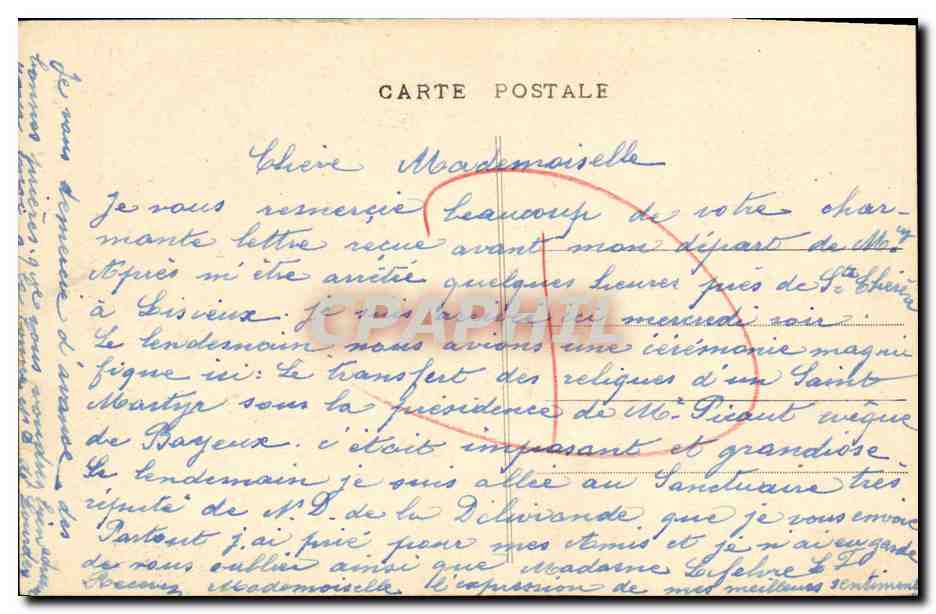 CARTE POSTALE
Chère Mademoiselle
Je vous remercie beaucoup de votre char-
mante lettre reçue avant mon départ de
Après m'être arrêté quelques heures près de Ste Thérèse
à Lisieux. je suis arrivée ici mercredi soir.
Le lendemain nous avions une cérémonie magni
fique ici: Le transfert des reliques d'un Saint
Martyr sous la présidence de Mr Picaut évêque
de Bayeux. c'était imposant et grandiose
Le lendemain je suis allée au Sanctuaire très
réputé de N. D. de la Délivrande que je vous envoie
Partout j'ai prié pour mes Amis et je n'ai eu garde
de vous oublier ainsi que Madame Lefebvre
Recevez Mademoiselle l'expression de mes meilleurs sentiments
Je vous demande d'avance des
bonnes prières que vous voudrez bien
CPAPHIL